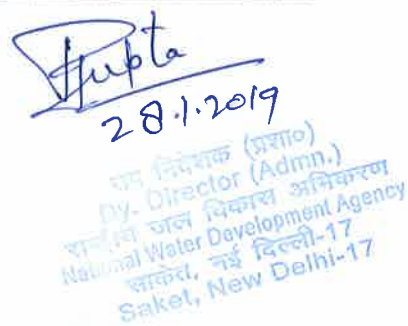 Gupta
28.1.2019
उप निदेशक (प्रशा०)
Dy. Director (Admn.)
राष्ट्रीय जल विकास अभिकरण
National Water Development Agency
साकेत, नई दिल्ली-17
Saket, New Delhi-17